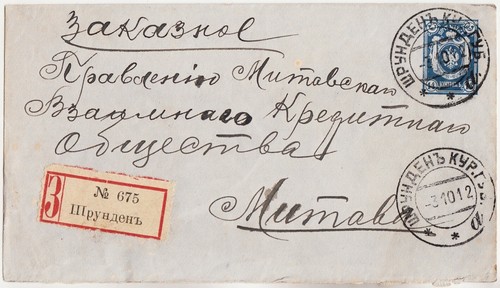 Заказное
Правленію Митавскаго
Взаимнаго Кредитнаго
Общества
Митава
З
№ 675
Шрунденъ
ШРУНДЕНЪ КУР. ГУБ.
а
ШРУНДЕНЪ КУР. ГУБ.
-3 10 12
а